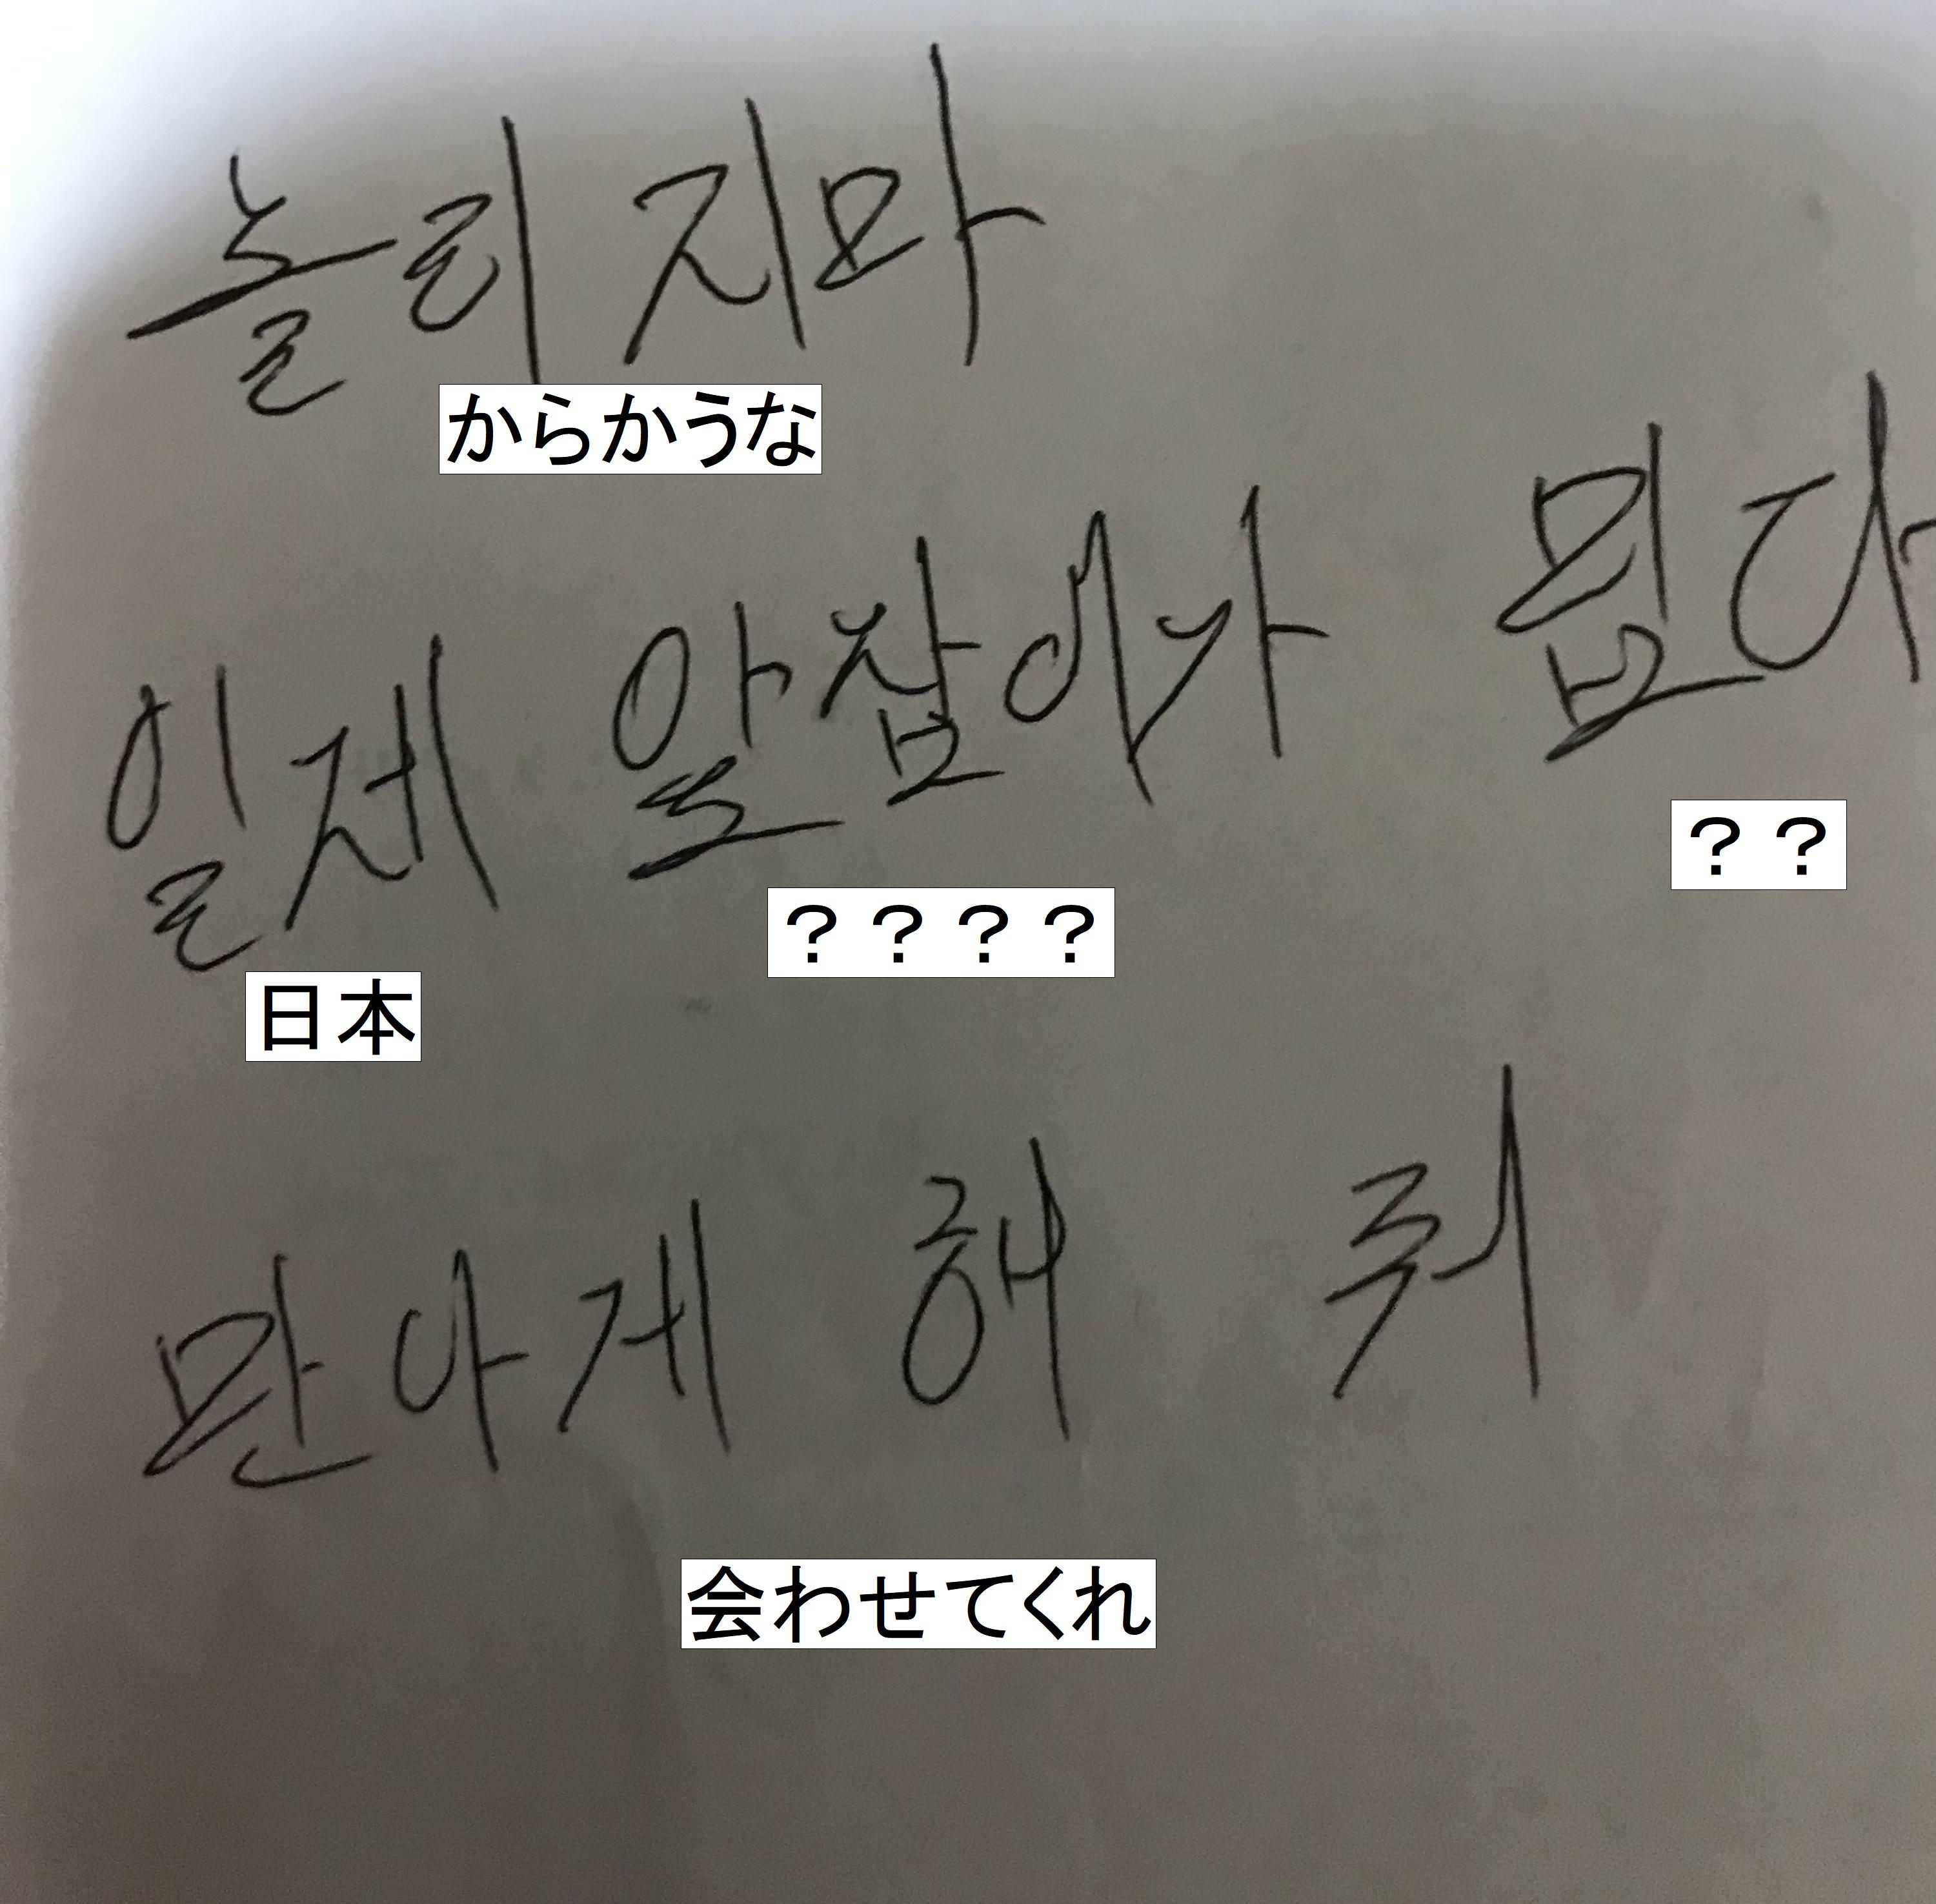 놀리지마
からかうな
일제 앞잡이가 밉다
? ?
? ? ? ?
日本
만나게 해 줘
会わせてくれ